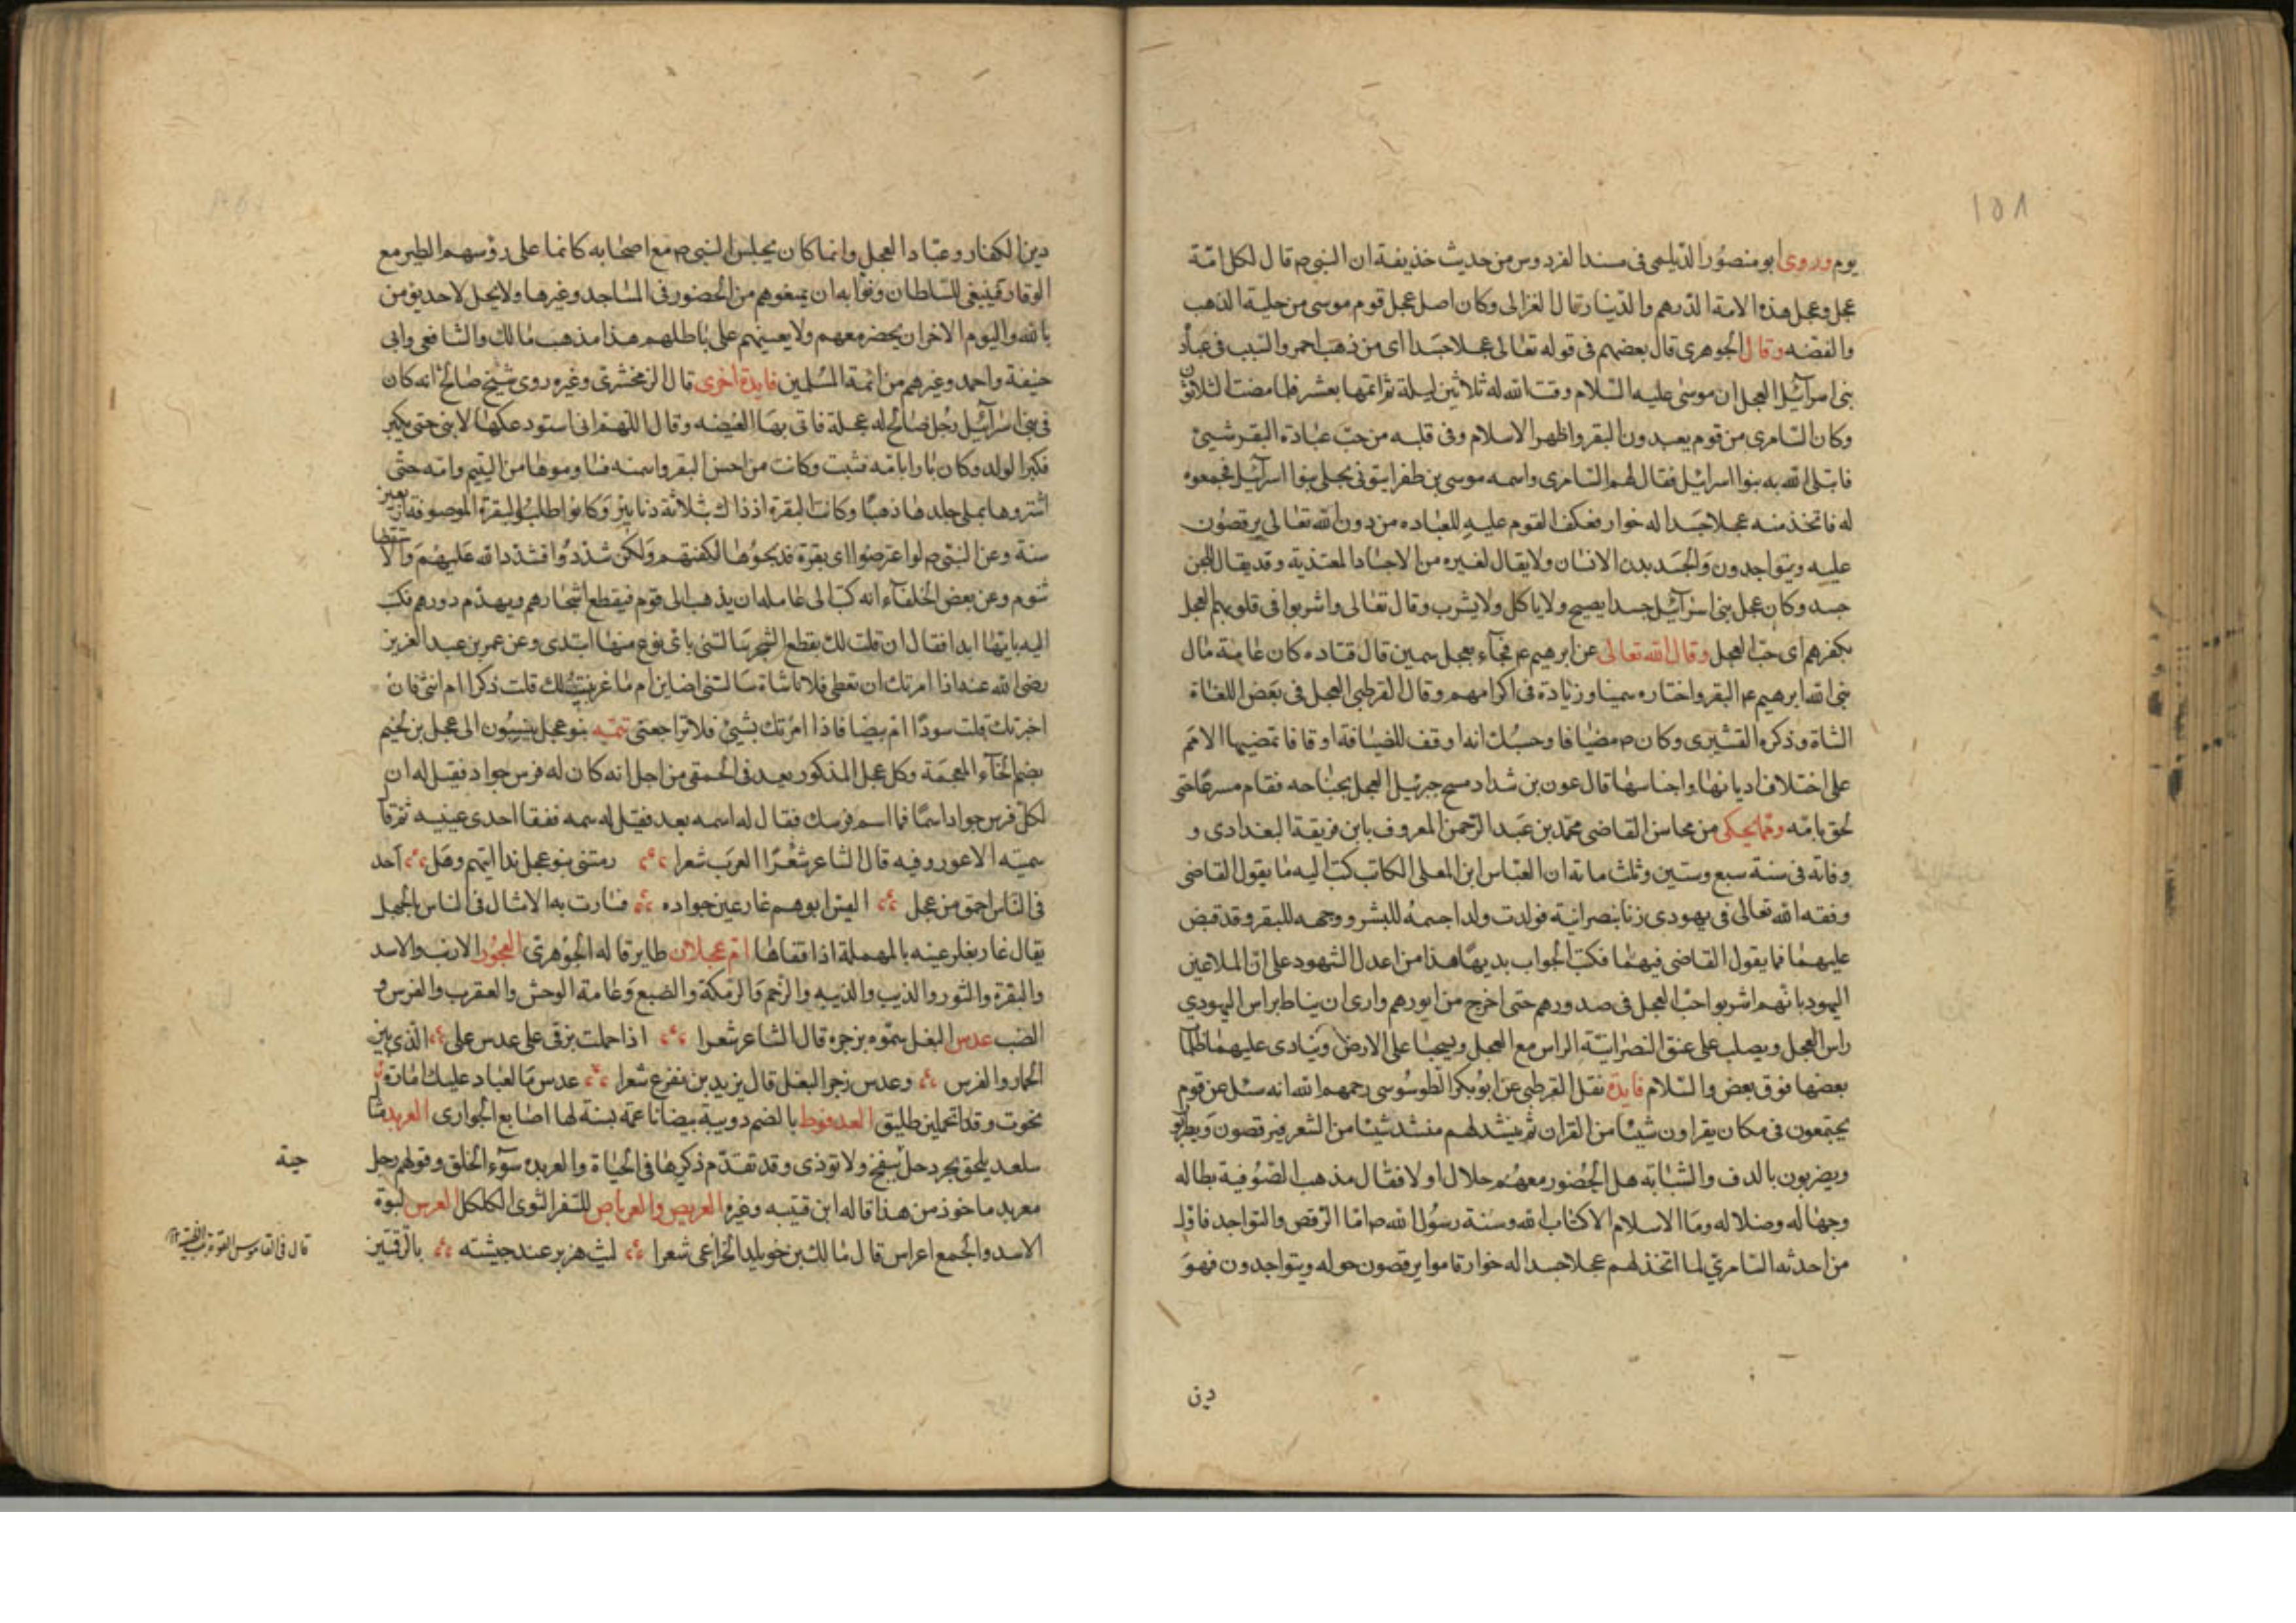 ١٥٨
يوم وروى ابو منصور الديلمى فى مسند الفردوس من حديث حذيفة ان النبى ص قال لكل امّة
عجل وعجل هذه الامة الدرهم والدينار قال الغزالى وكان اصل عجل قوم موسى من حلية الذهب
والفضه وقال الجوهرى قال بعضهم فى قوله تعالى عجلا جسدا اى من ذهب احمر والسبب فى عبادة
بنى اسرآئيل العجل ان موسى عليه السلام وقت الله له ثلاثين ليلة ثم اتمها بعشر فلما مضت الثلاثون
وكان السامرى من قوم يعبدون البقر واظهر الاسلام وفى قلبه من حب عبادة البقر شيئ
فابتلى الله به بنوا اسرائيل فقال لهم السامرى واسمه موسى بن ظفر ايتونى بحلى بنوا اسرآئيل فجمعوه
له فاتخذ منه عجلا جسدا له خوار فعكف القوم عليه للعباده من دون الله تعالى يرقصون
عليه ويتواجدون والجسد بدن الانسان ولا يقال لغيره من الاجساد المغتذية وقد يقال للجن
جسد وكان عجل بنى اسرآئيل جسدا يصيح ولا ياكل ولا يشرب وقال تعالى واشربوا فى قلوبهم العجل
بكفرهم اى حب العجل وقال الله تعالى عن ابرهيم ع م فجآء بعجل سمين قال قتاده كان عامة مال
نبى الله ابرهيم ع م البقر واختاره سمينا وزيادة فى اكرامهم وقال القرطبى العجل فى بعض اللغاة
الشاة وذكره القشيرى وكان ص مضيافا وحسبك انه اوقف للضيافة اوقافا تمضيها الامم
على اختلاف اديانها واجناسها قال عون بن شداد مسح جبرئيل العجل بجناحه فقام مسرعا حتى
لحق بامّه ومما يحكى من محاسن القاضى محمّد بن عبد الرحمن المعروف بابن قريقة البغدادى و
وفاته فى سنة سبع وستين وثلث مائة ان العباس ابن المعلى الكاتب كتب اليه ما يقول القاضى
وفقه الله تعالى فى يهودى زنا بنصرانية فولدت ولدا جسمه للبشر ووجهه للبقر وقد قبض
عليهما فما يقول القاضى فيهما فكتب الجواب بديها هذا من اعدل الشهود على ان الملاعين
اليهود بانهم اشربوا حب العجل فى صدورهم حتى اخرج من ايورهم وارى ان يناط براس اليهودى
راس العجل ويصلب على عنق النصرانية الراس مع العجل ويسحبا على الارض وينادى عليهما ظلمات
بعضها فوق بعض والسلام فايدة نقل القرطبى عن ابو بكر الطوسوسى رحمهم الله انه سئل عن قوم
يجتمعون فى مكان يقراون شيئا من القران ثم ينشد لهم منشد شيئا من الشعر فيرقصون ويطربون
ويضربون بالدف والشبابة هل الحضور معهم حلال او لا فقال مذهب الصوفية بطاله
وجهاله وضلاله وما الاسلام الا كتاب الله وسنة رسول الله ص امّا الرقص والتواجد فاول
من احدثه السامرى لما اتخذ لهم عجلا جسدا له خوار قاموا يرقصون حوله ويتواجدون فهو
دين
دين الكفار وعبّاد العجل وانما كان يجلس النبى ص مع اصحابه كانما على رؤسهم الطير مع
الوقار فينبغى للسلطان ونوابه ان يمنعوهم من الحضور فى المساجد وغيرها ولا يحل لاحد يؤمن
بالله واليوم الاخر ان يحضر معهم ولا يعينهم على باطلهم هذا مذهب مالك والشافعى وابى
حنيفة واحمد وغيرهم من ائمة المسلمين فايدة اخرى قال الزمخشرى وغيره روى شيخ صالح انه كان
فى بنى اسرآئيل رجل صالح له عجلة فاتى بها الغيضه وقال اللهم انى استودعكها لابنى حتى يكبر
فكبر الولد وكان بارا بامّه فشبت وكانت من احسن البقر واسمنه فساوموها من اليتيم وامه حتى
اشتروها بملى جلدها ذهبا وكانت البقرة اذ ذاك بثلاثة دنانير وكانوا طلبوا البقرة الموصوفة اربعين
سنة وعن النبى ص لو اعترضوا اى بقرة فذبحوها لكفتهم ولكن شددوا فشدد الله عليهم والاستقصا
شوم وعن بعض الخلفآء انه كتب الى عامله ان يذهب الى قوم فيقطع اشجارهم ويهدم دورهم فكتب
اليه بايهما ابدا فقال ان قلت لك بقطع الشجر سالتنى باى نوع منها ابتدى وعن عمر بن عبد العزيز
رضى الله عنه اذا امرتك ان تعطى فلانا شاة سالتنى اضاين ام ماعز فان قلت لك قلت ذكرا ام انثى فان
اخبرتك قلت سودا ام بيضا فاذا امرتك بشيئ فلا تراجعنى تتمه بنو عجل ينسبون الى عجل بن لجيم
بضم الخآء المعجمة وكل عجل المذكور يعد فى الحمقى من اجل انه كان له فرس جواد فقيل له ان
لكل فرس جواد اسمًا فما اسم فرسك فقال له اسمه بعد فقيل له سمه ففقا احدى عينيه ثم قال
سميته الاعور وفيه قال الشاعر شعرا العرب شعرا رمتنى بنو عجل بدا ابيهم وهل احد
فى الناس احمق من عجل اليس ابوهم غار عين جواده فسارت به الامثال فى الناس بالجهل
يقال غار بغلر عينه بالمهملة اذا فقاها ام عجلان طاير قاله الجوهرى العجوز الارنب والاسد
والبقرة والثور والذيب والذيبه والرخم والرمكة والضبع وعامة الوحش والعقرب والفرس و
الضب عدس البغل سموه بزجره قال الشاعر شعرا اذا حملت بزقى على عدس على الذى بين
الحمار والفرس وعدس زجر البغل قال يزيد بن مفرع شعرا عدس ما لعباد عليك امارة
نجوت وقد تحملين طليق العدفوط بالضم دويبة بيضا ناعمة يشبه لها اصابع الجوارى العربد مثا
سلعد يلحق بجردحل ينفخ ولا توذى وقد تقدم ذكرها فى الحياة والعربده سوء الخلق وقولهم رجل
معربد ماخوذ من هذا قاله ابن قتيبه وغيره العربص والعرباص للسفر الثوى الكلكل العرس لبوة
الاسد والجمع اعراس قال مالك بن خويلد الخزاعى شعرا ليث هزبر عند جيشته بالرقمتين
حية
قال فى القاموس